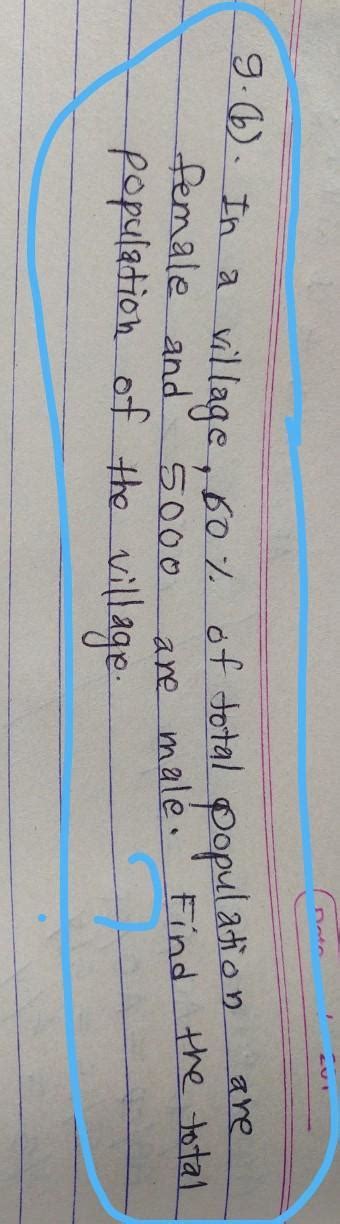 9.(b). In a village, 60% of total population are
female and 5000 are male. Find the total
population of the village.